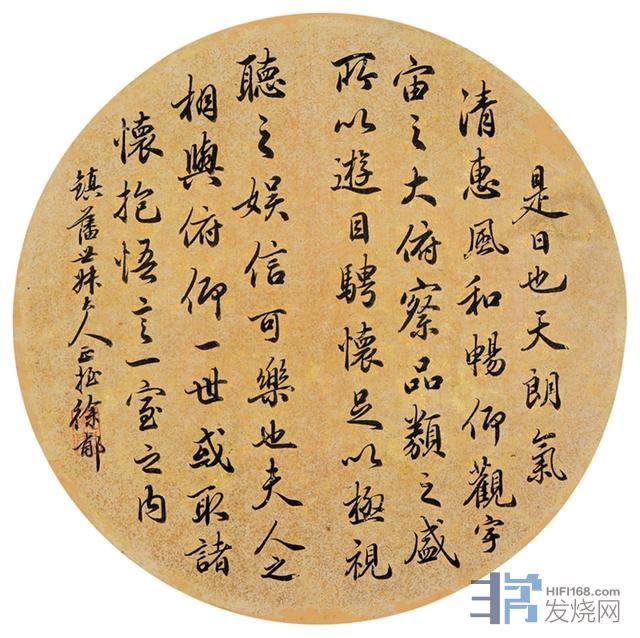 是日也天朗氣
清惠風和暢仰觀宇
宙之大俯察品類之盛
所以遊目騁懷足以極視
聽之娛信可樂也夫人之
相與俯仰一世或取諸
懷抱悟言一室之内
鎮藩世妹夫人正拙徐郁
HIFI168.com
发烧网